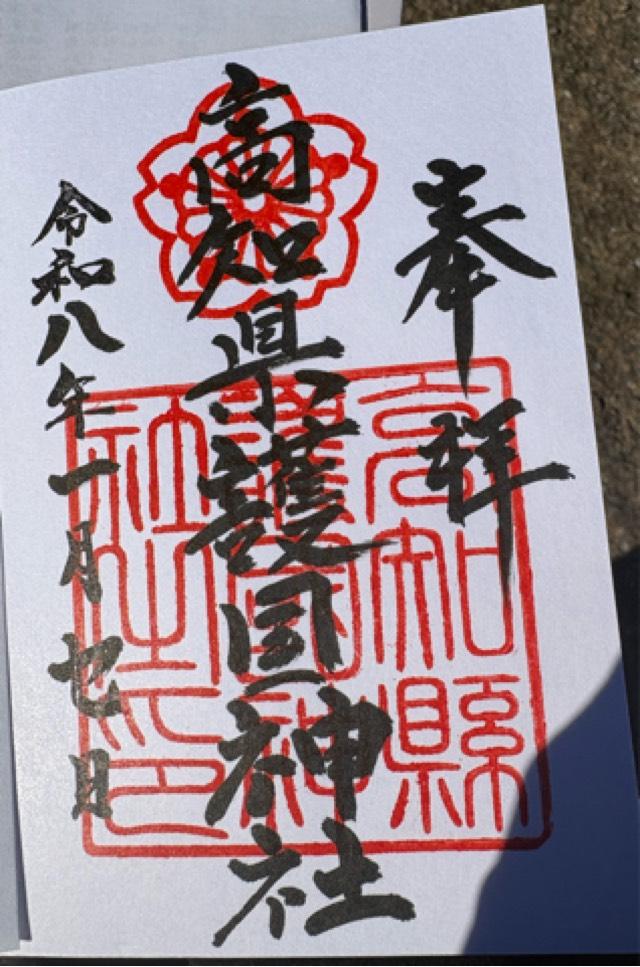 奉拝
高知県護国神社
令和八年一月廿日
高知縣
護國神
社之印